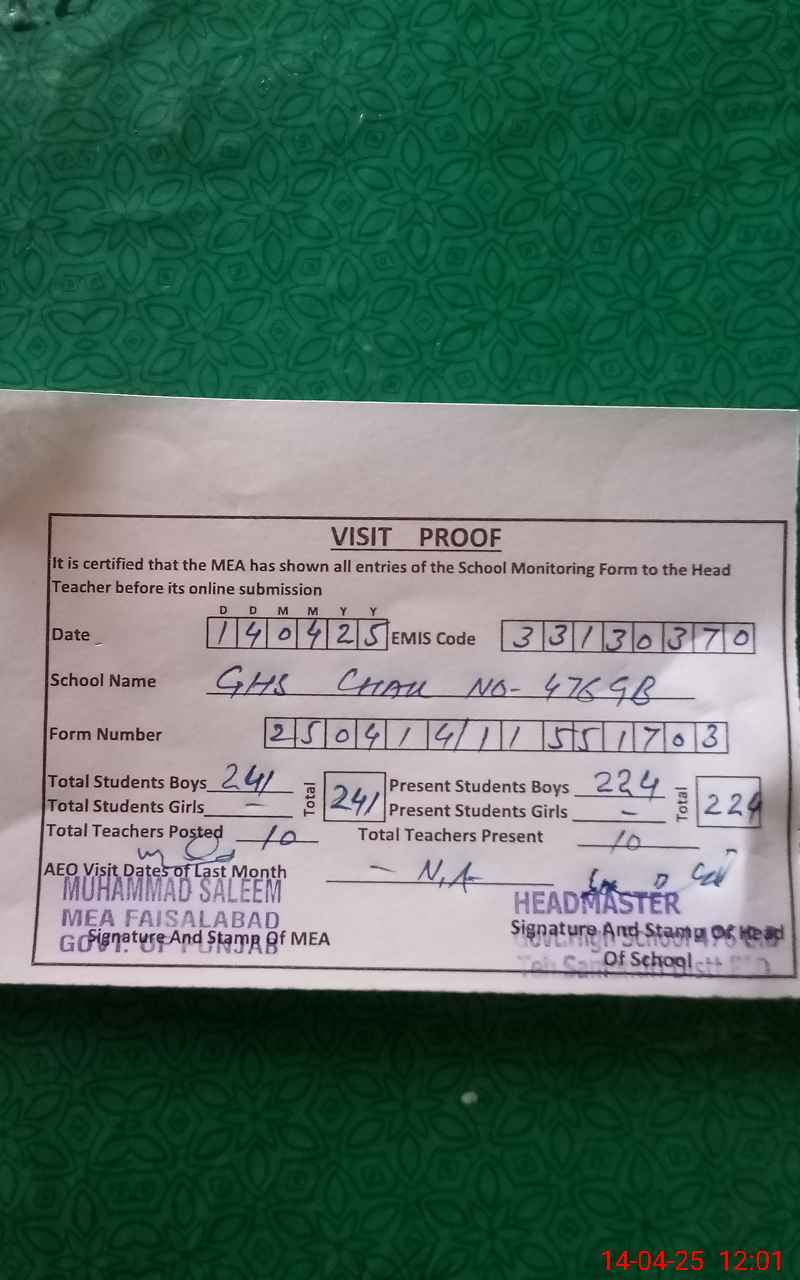 VISIT PROOF
It is certified that the MEA has shown all entries of the School Monitoring Form to the Head
Teacher before its online submission
D D M M Y Y
Date 140425 EMIS Code 33130370
School Name GHS CHAK NO- 476 GB
Form Number 250414/11551703
Total Students Boys 241 Total 241 Present Students Boys 224 Total 224
Total Students Girls - Present Students Girls -
Total Teachers Posted 10 Total Teachers Present 10
AEO Visit Dates of Last Month - N.A
MUHAMMAD SALEEM
MEA FAISALABAD
GOVT. OF PUNJAB
Signature And Stamp Of MEA
HEADMASTER
Signature And Stamp Of Head
Of School
14-04-25 12:01